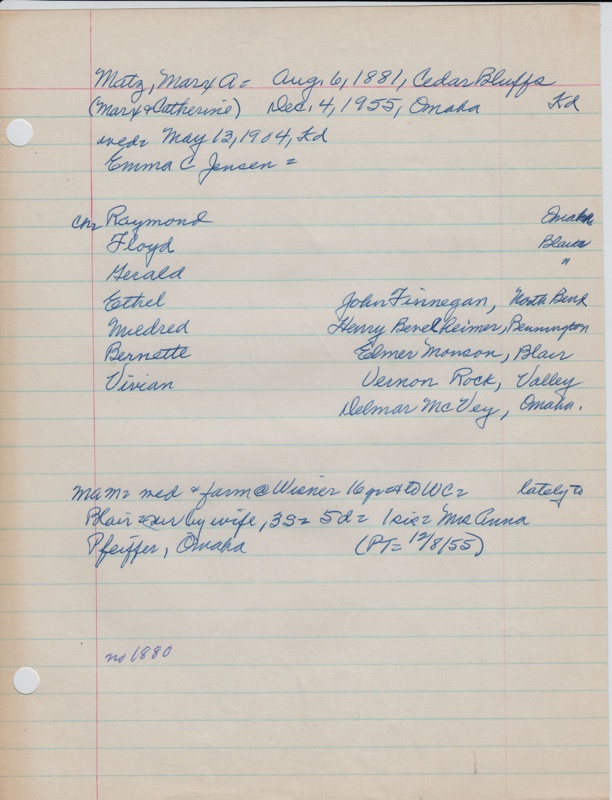 Matz, Marx A = Aug. 6, 1881, Cedar Bluffs
(Marx & Catherine) Dec. 4, 1955, Omaha Kd
wed = May 13, 1904, Kd
Emma C Jensen =
ch = Raymond Omaha
Floyd Blair
Gerald "
Ethel John Finnegan, North Bend
Mildred Henry Bendheimer, Bennington
Bernette Elmer Monson, Blair
Vivian Vernon Rock, Valley
Delmar McVey, Omaha.
MAM = med & farm @ Wisner 16 yr & to WC = lately to
Blair = sur by wife, 3s = 5d = 1 sis = Mrs Anna
Pfeiffer, Omaha (PT = 12/8/55)
no 1880